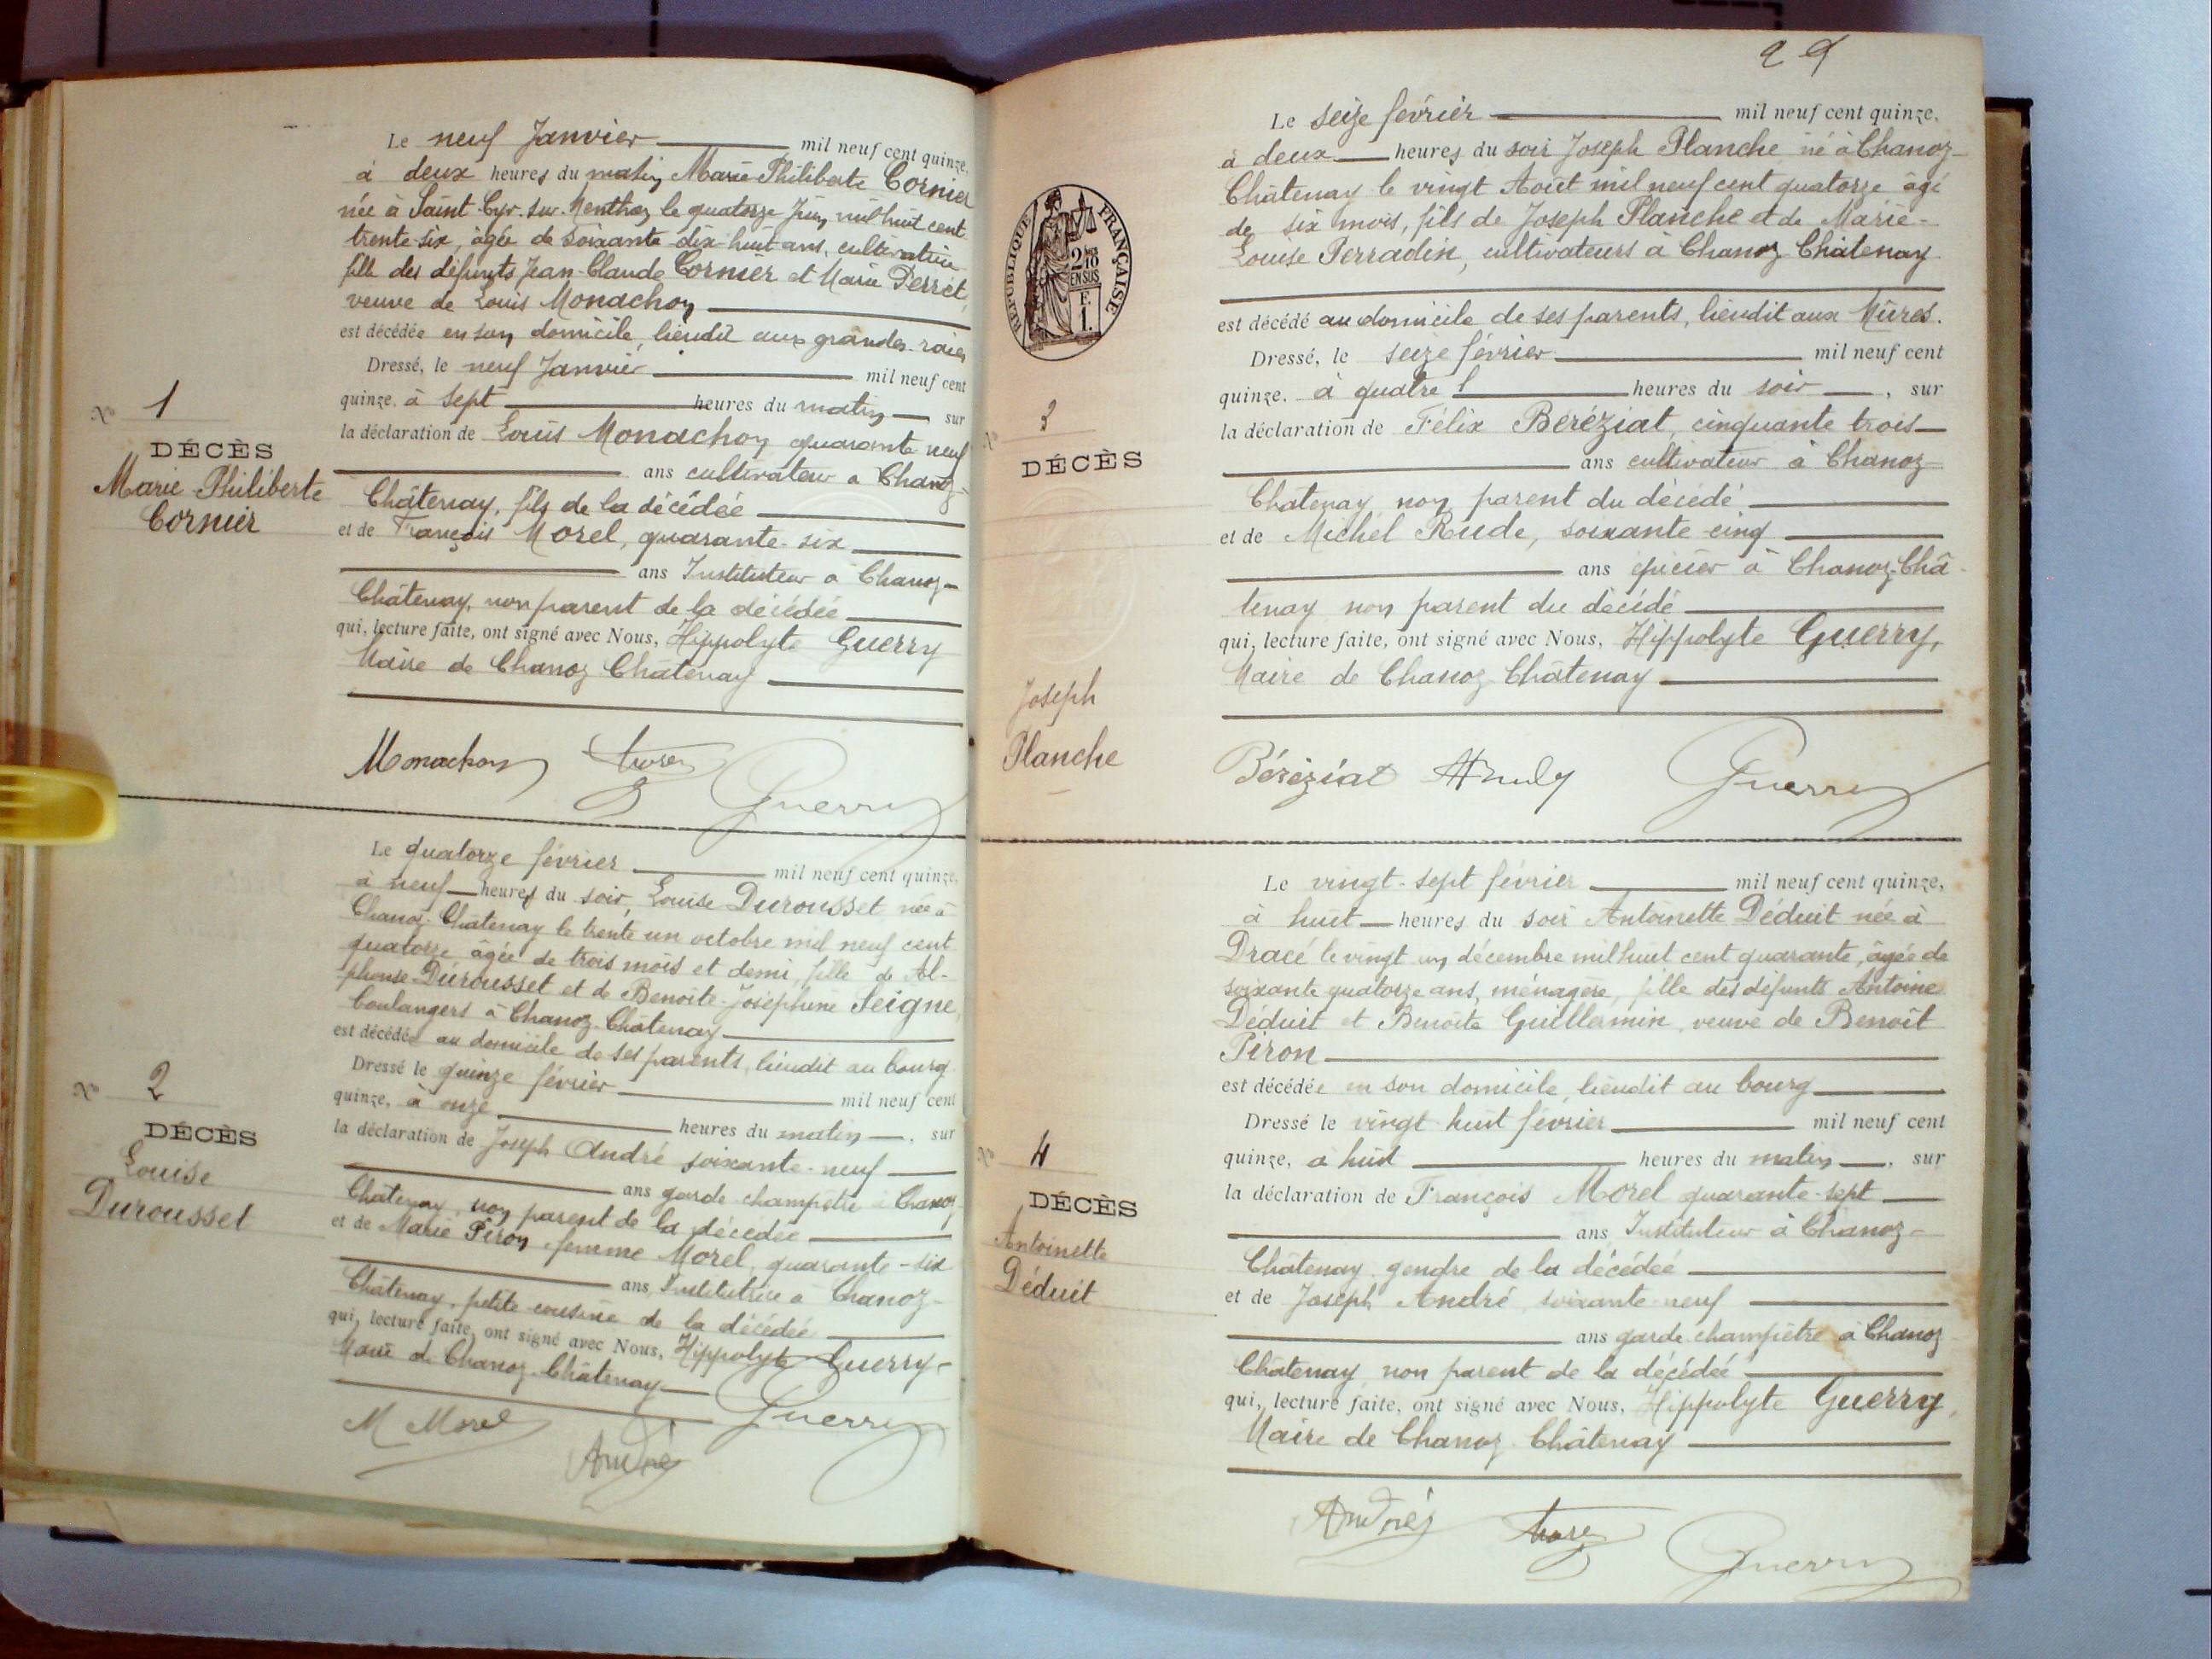 Le neuf Janvier mil neuf cent quinze,
à deux heures du matin Marie-Philiberte Cornier
née à Saint-Cyr-sur-Menthon le quatorze Juin mil huit cent
trente-six, âgée de soixante-dix-huit ans, cultivatrice
fille des défunts Jean-Claude Cornier et Marie Perret,
veuve de Louis Monachon
est décédée en son domicile, lieudit aux grandes-raies
Dressé, le neuf Janvier mil neuf cent
quinze, à sept heures du matin sur
la déclaration de Louis Monachon quarante neuf
ans cultivateur à Chanoz-
Châtenay, fils de la décédée
et de François Morel, quarante-six
ans Instituteur à Chanoz-
Châtenay, non parent de la décédée
qui, lecture faite, ont signé avec Nous, Hippolyte Guerry
Maire de Chanoz Châtenay
N° 1
DÉCÈS
Marie-Philiberte
Cornier
Monachon Morel Guerry
Le quatorze février mil neuf cent quinze,
à neuf heures du soir, Louise Durousset née à
Chanoz-Châtenay le trente un octobre mil neuf cent
quatorze, âgée de trois mois et demi, fille de Al-
phonse Durousset et de Benoîte-Joséphine Seigne,
boulangers à Chanoz-Châtenay
est décédée au domicile de ses parents, lieudit au bourg
Dressé le quinze février mil neuf cent
quinze, à onze heures du matin, sur
la déclaration de Joseph André soixante-neuf
ans garde champêtre à Chanoz
Châtenay, non parent de la décédée
et de Marie Piron femme Morel, quarante-six
ans, Institutrice à Chanoz-
Châtenay, petite cousine de la décédée
qui, lecture faite, ont signé avec Nous, Hippolyte Guerry-
Maire de Chanoz-Châtenay
N° 2
DÉCÈS
Louise
Durousset
M Morel André Guerry
29
RÉPUBLIQUE FRANÇAISE
2/10
EN SUS
F.
1.
Le seize février mil neuf cent quinze,
à deux heures du soir Joseph Planche né à Chanoz-
Châtenay le vingt Août mil neuf cent quatorze âgé
de six mois, fils de Joseph Planche et de Marie-
Louise Perradin, cultivateurs à Chanoz Châtenay
est décédé au domicile de ses parents, lieudit aux Mûres.
Dressé, le seize février mil neuf cent
quinze, à quatre heures du soir, sur
la déclaration de Félix Béréziat, cinquante trois
ans cultivateur à Chanoz-
Châtenay non parent du décédé
et de Michel Rude, soixante-cinq
ans épicier à Chanoz-Châ-
tenay non parent du décédé
qui, lecture faite, ont signé avec Nous, Hippolyte Guerry,
Maire de Chanoz Châtenay
N° 3
DÉCÈS
Joseph
Planche
Béréziat Guerry
Le vingt-sept février mil neuf cent quinze,
à huit heures du soir Antoinette Déduit née à
Dracé le vingt un décembre mil huit cent quarante, âgée de
soixante quatorze ans, ménagère, fille des défunts Antoine
Déduit et Benoîte Guillermin, veuve de Benoît
Piron
est décédée en son domicile, lieudit au bourg
Dressé le vingt-huit février mil neuf cent
quinze, à huit heures du matin, sur
la déclaration de François Morel quarante-sept
ans Instituteur à Chanoz-
Châtenay, gendre de la décédée
et de Joseph André soixante-neuf
ans garde champêtre à Chanoz
Châtenay non parent de la décédée
qui, lecture faite, ont signé avec Nous, Hippolyte Guerry,
Maire de Chanoz Châtenay
N° 4
DÉCÈS
Antoinette
Déduit
André Morel Guerry